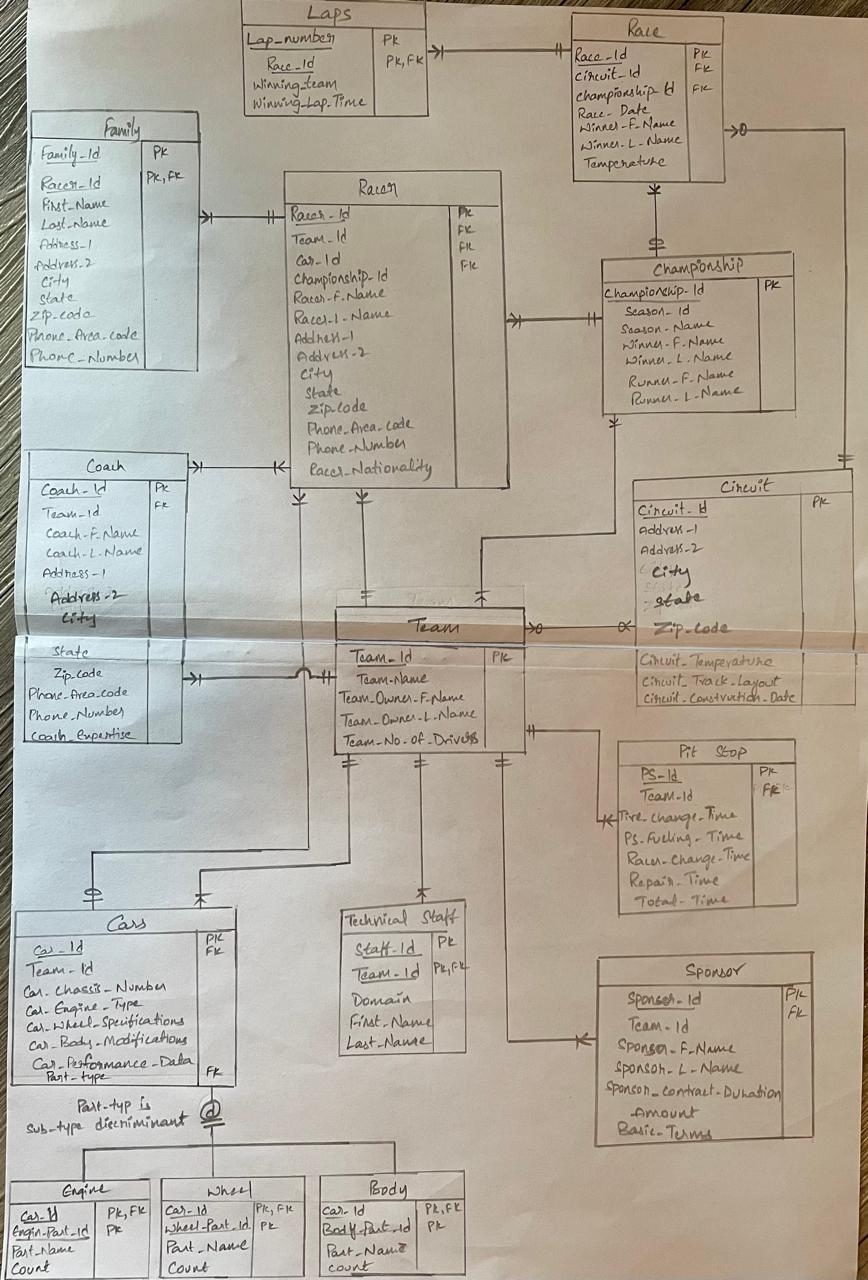 Laps
Lap_number PK
Race_Id PK, FK
Winning_team
Winning_Lap_Time
Race
Race_Id PK
Circuit_Id FK
Championship_Id FK
Race_Date
Winner_F_Name
Winner_L_Name
Temperature
Family
Family_Id PK
Racer_Id PK, FK
First_Name
Last_Name
Address_1
Address_2
City
State
Zip_code
Phone_Area_code
Phone_Number
Racer
Racer_Id PK
Team_Id FK
Car_Id FK
Championship_Id FK
Racer_F_Name
Racer_L_Name
Address_1
Address_2
City
State
Zip_code
Phone_Area_code
Phone_Number
Racer_Nationality
Championship
Championship_Id PK
Season_Id
Season_Name
Winner_F_Name
Winner_L_Name
Runner_F_Name
Runner_L_Name
Coach
Coach_Id PK
Team_Id FK
Coach_F_Name
Coach_L_Name
Address_1
Address_2
City
State
Zip_code
Phone_Area_code
Phone_Number
Coach_Expertise
Circuit
Circuit_Id PK
Address_1
Address_2
City
State
Zip_code
Circuit_Temperature
Circuit_Track_Layout
Circuit_Construction_Date
Team
Team_Id PK
Team_Name
Team_Owner_F_Name
Team_Owner_L_Name
Team_No_of_Drivers
Pit Stop
PS_Id PK
Team_Id FK
Tire_change_Time
PS_Fueling_Time
Racer_Change_Time
Repair_Time
Total_Time
Cars
Car_Id PK
Team_Id FK
Car_Chassis_Number
Car_Engine_Type
Car_Wheel_Specifications
Car_Body_Modifications
Car_Performance_Data
Part_type FK
Technical Staff
Staff_Id PK
Team_Id PK, FK
Domain
First_Name
Last_Name
Sponsor
Sponsor_Id PK
Team_Id FK
Sponsor_F_Name
Sponsor_L_Name
Sponsor_Contract_Duration
Amount
Basic_Terms
Part_typ is
sub-type discriminant
d
Engine
Car_Id PK, FK
Engin_Part_Id PK
Part_Name
Count
Wheel
Car_Id PK, FK
Wheel_Part_Id PK
Part_Name
Count
Body
Car_Id PK, FK
Body_Part_Id PK
Part_Name
count